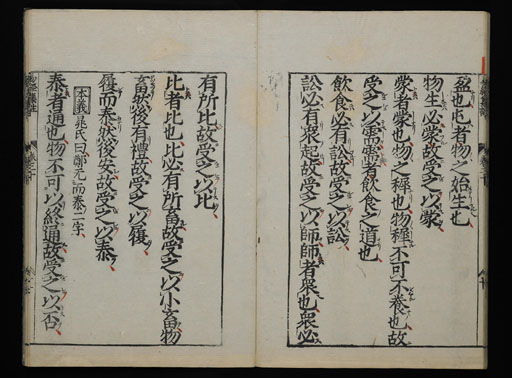 盈也屯者物之始生也
物生必蒙故受之以蒙
蒙者蒙也物之穉也物穉不可不養也故
受之以需需者飲食之道也
飲食必有訟故受之以訟
訟必有衆起故受之以師師者衆也衆必
有所比故受之以比
比者比也比必有所畜故受之以小畜物
畜然後有禮故受之以履
履而泰然後安故受之以泰
本義晁氏曰鄭无而泰二字
泰者通也物不可以終通故受之以否